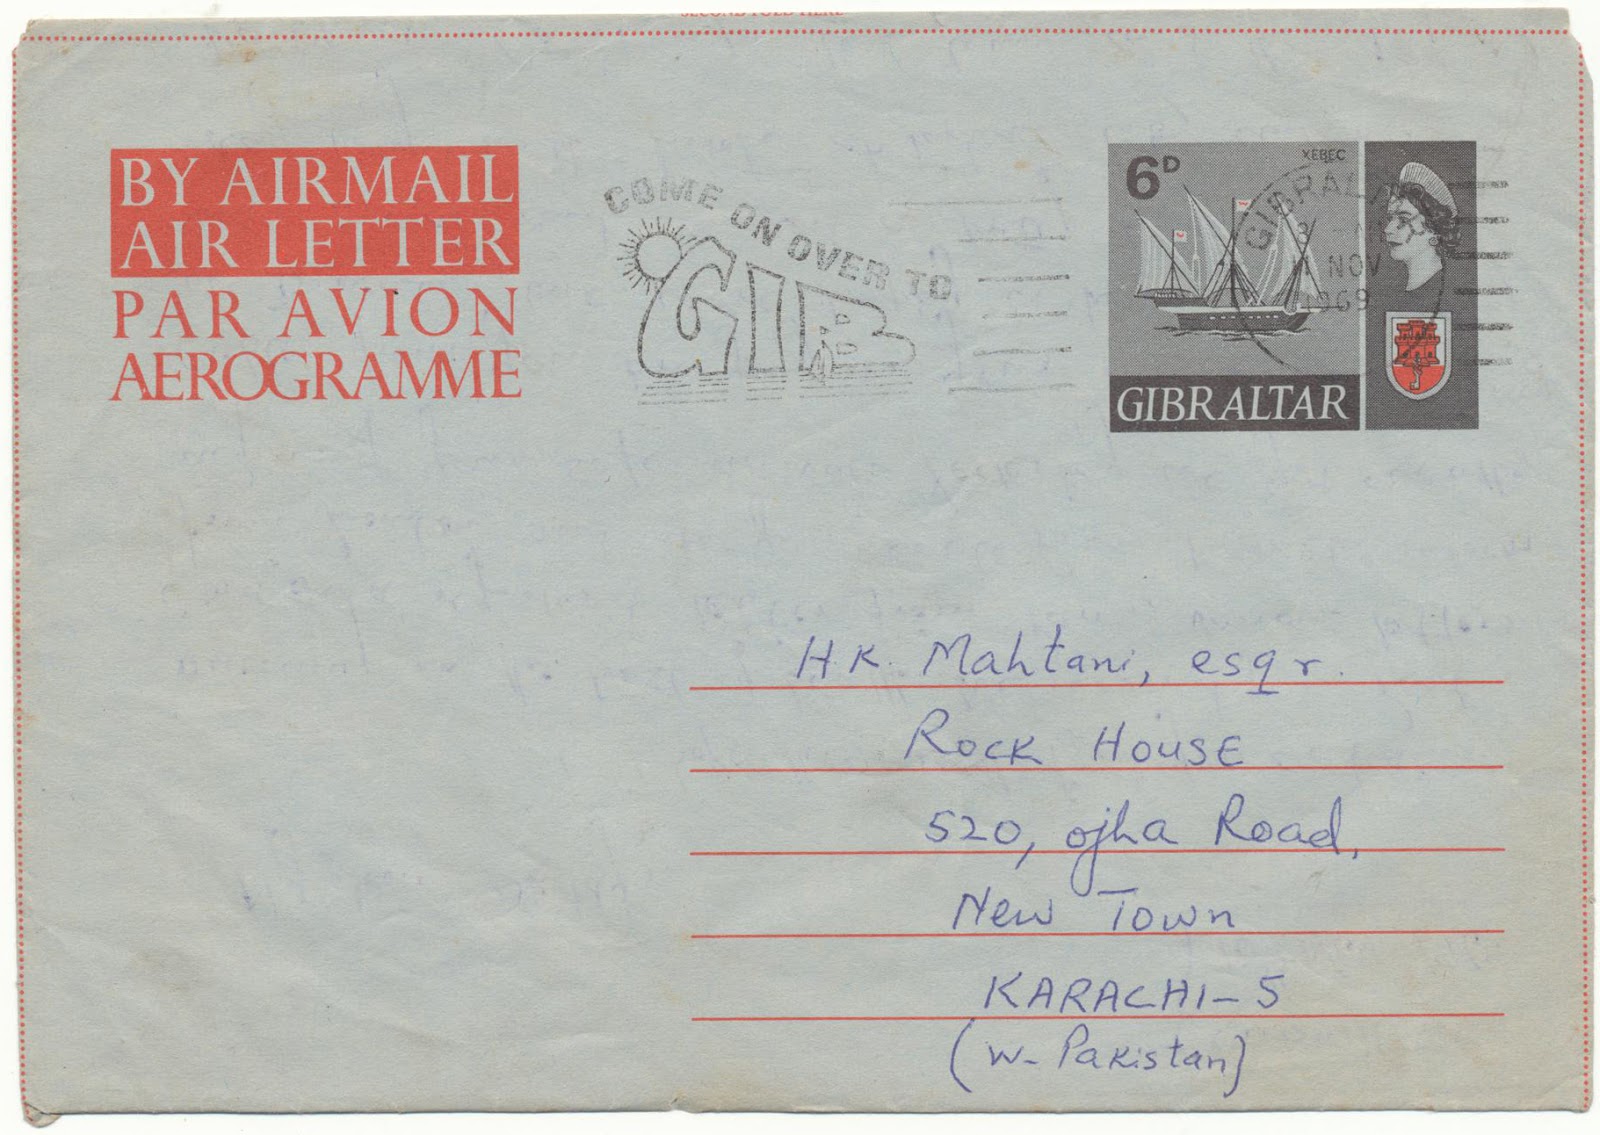 SECOND FOLD HERE
BY AIRMAIL
AIR LETTER
PAR AVION
AEROGRAMME
COME ON OVER TO
GIB
6D
XEBEC
GIBRALTAR
GIBRALTAR
NOV
1969
H.K. Mahtani, esqr.
Rock House
520, ojha Road,
New Town
KARACHI-5
(W-Pakistan)